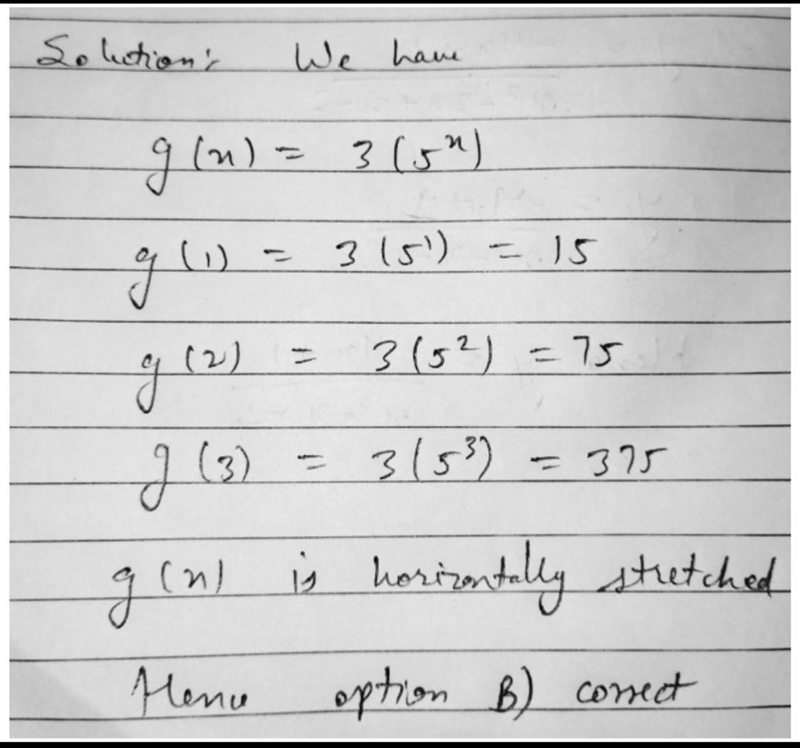 Solution: We have
g(x) = 3(5^x)
g(1) = 3(5^1) = 15
g(2) = 3(5^2) = 75
g(3) = 3(5^3) = 375
g(x) is horizontally stretched
Hence option B) correct